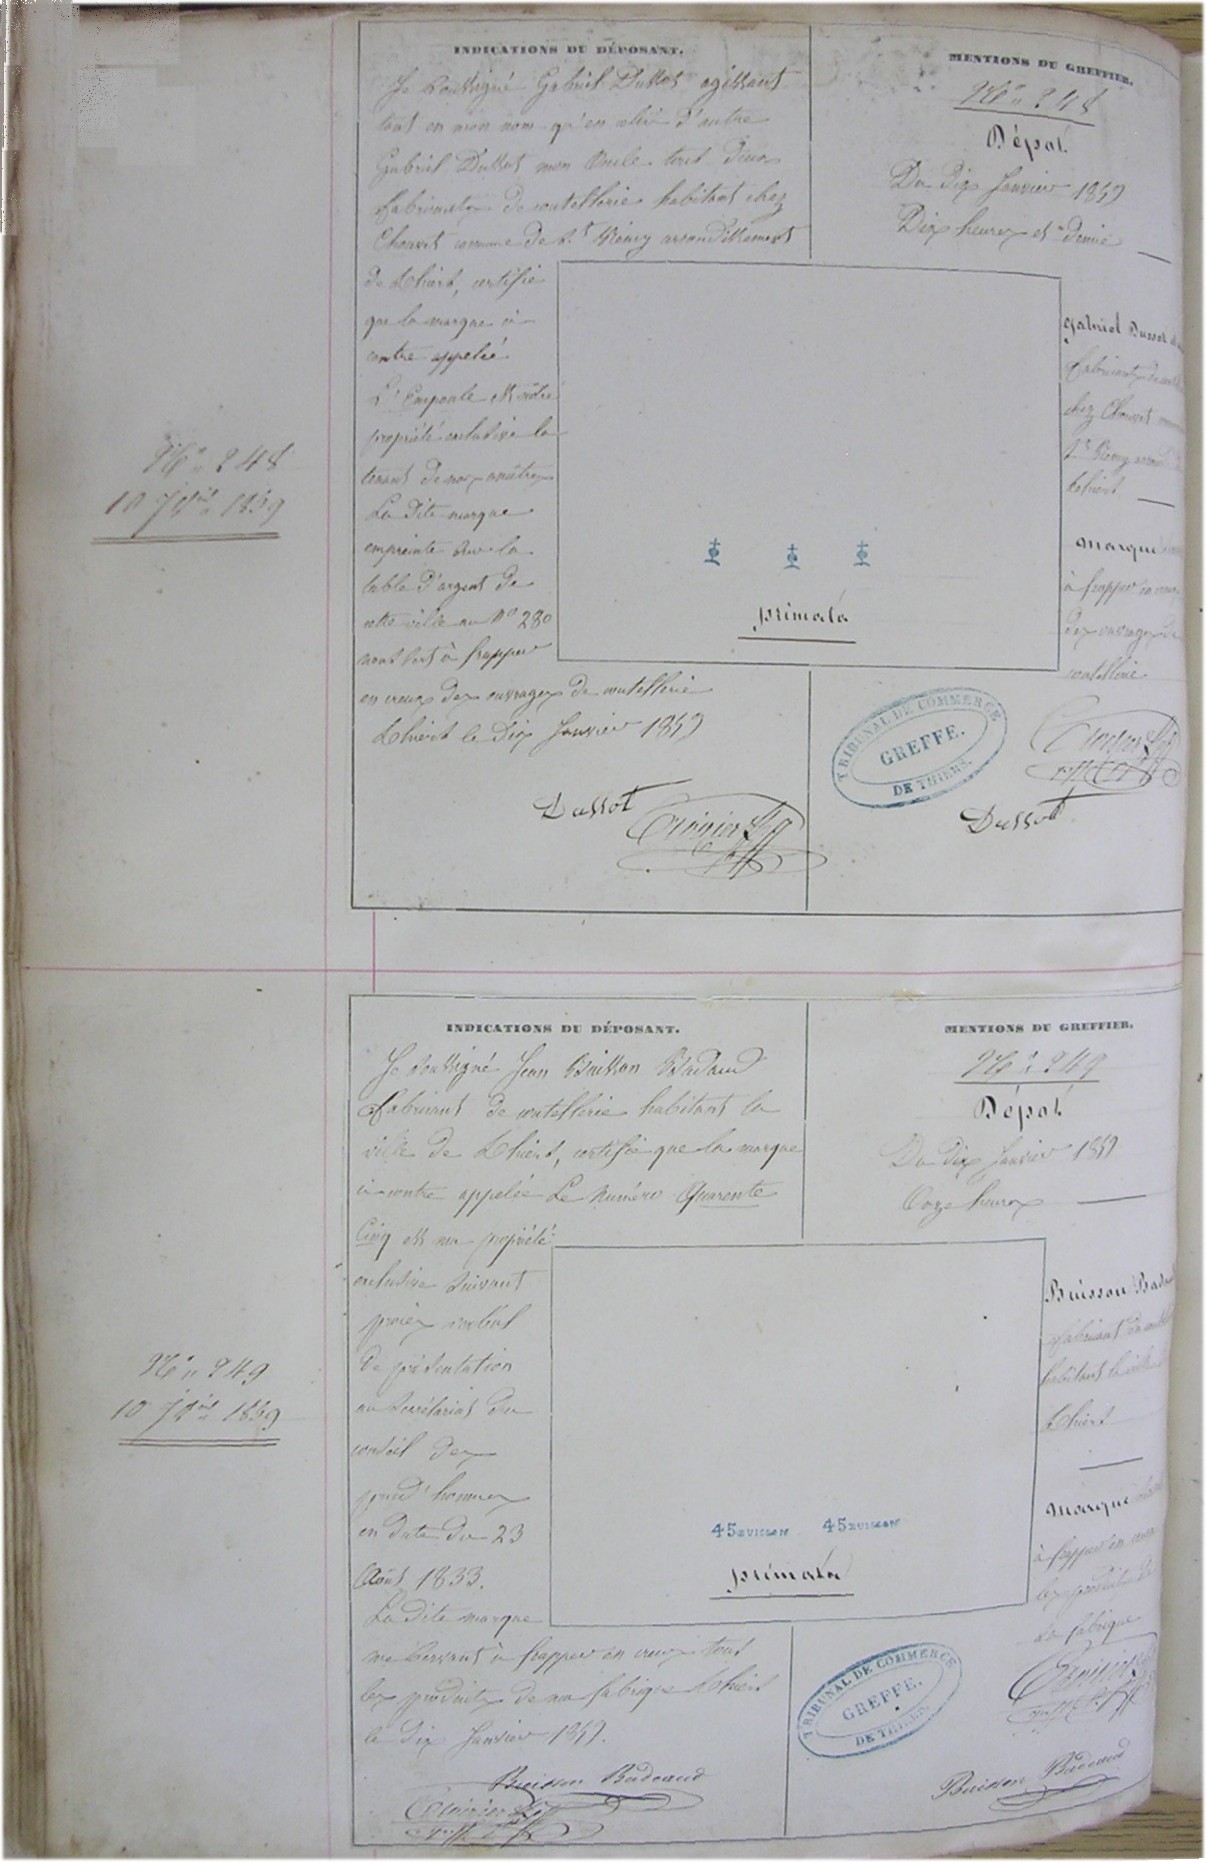 INDICATIONS DU DÉPOSANT.
Je soussigné Gabriel Dussot agissant
tant en mon nom qu'en celui d'autre
Gabriel Dussot mon Oncle tout deux
fabricants de coutellerie habitant chez
Chouvet commune de St Rémy arrondissement
de Thiers, certifie
que la marque ci
contre appelée
L'Empoule est nôtre
propriété exclusive la
tenant de nos ancêtres
La dite marque
empreinte sur la
table d'argent de
cette ville au No 280
nous sert à frapper
en creux des ouvrages de coutellerie
Thiers le Dix Janvier 1859
Dussot
MENTIONS DU GREFFIER.
No 248
Dépot
Du Dix Janvier 1859
Dix heures et demie
Gabriel Dussot
fabricants de
chez Chouvet
St Rémy
Thiers
Marque
à frapper en creux
des ouvrages de
coutellerie
primata
TRIBUNAL DE COMMERCE
GREFFE.
DE THIERS.
Dussot
No 248
10 Jer 1859
INDICATIONS DU DÉPOSANT.
Je soussigné Jean Buisson Badaud
fabricant de coutellerie habitant la
ville de Thiers, certifie que la marque
ci contre appelée Le Numéro Quarente
Cinq est ma propriété
exclusive suivant
procès verbal
de présentation
au secrétariat du
conseil des
prud'hommes
en date du 23
Août 1833.
La dite marque
me servant à frapper en creux tous
les produits de ma fabrique Thiers
le dix Janvier 1859.
Buisson Badaud
MENTIONS DU GREFFIER.
No 249
Dépot
Du Dix Janvier 1859
Onze heures
Buisson
fabricant de
habitant la ville
Thiers
Marque
à frapper en creux
les produits de
sa fabrique
45 BUISSON 45 BUISSON
primata
TRIBUNAL DE COMMERCE
GREFFE.
DE THIERS.
Buisson Badaud
No 249
10 Jer 1859